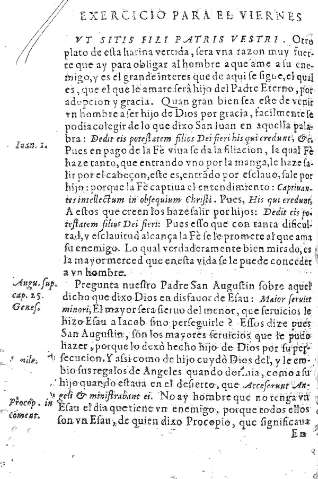 EXERCICIO PARA EL VIERNES
VT SITIS FILI PATRIS VESTRI. Otro
plato de esta harina vertida, sera vna razon muy fuer-
te que ay para obligar al hombre a que ame a su ene-
migo, y es el grande interes que de aqui se sigue, el qual
es, que el que le amare será hijo del Padre Eterno, por
adopcion y gracia. Quan gran bien sea este de venir
vn hombre a ser hijo de Dios por gracia, facilmente se
podia colegir de lo que dixo San Iuan en aquella pala-
bra: Dedit eis potestatem filios Dei fieri his qui credunt, &c.
Ioan. 1.
Pues en pago de la Fè viua se da la filiacion, la qual Fè
haze tanto, que entrando vno por la manga, le haze sa-
lir por el cabeçon, este es, entrado por esclauo, sale por
hijo: porque la Fè captiua el entendimiento: Captiuan-
tes intellectum in obsequium Christi. Pues, His qui credunt,
A estos que creen los haze salir por hijo: Dedit eis po-
testatem filios Dei fieri: Pues esso que con tanta dificul-
tad, y esclauitud alcança la Fè se le promete al que ama
su enemigo. Lo qual verdaderamente bien mirado, es
la mayor merced que en esta vida se le puede conceder
a vn hombre.
Augu. sup.
cap. 25.
Genes.
Pregunta nuestro Padre San Augustin sobre aquel
dicho que dixo Dios en disfauor de Esau: Maior seruiet
minori, El mayor será sieruo del menor, que seruicios le
hizo Esau a Iacob sino perseguirle? Essos dize pues
San Augustin, son los mayores seruicios que le pudo
hazer, porque lo dexó hecho hijo de Dios por su per-
secucion. Y assi como de hijo cuydó Dios del, y le em-
bio sus regalos de Angeles quando dormia, como a su
hijo quando estaua en el desierto, que Accesserunt An-
geli & ministrabant ei. No ay hombre que no tenga vn
Procop. in
coment.
Esau el dia que tiene vn enemigo, porque todos ellos
son vn Esau, de quien dixo Procopio, que significaua
En